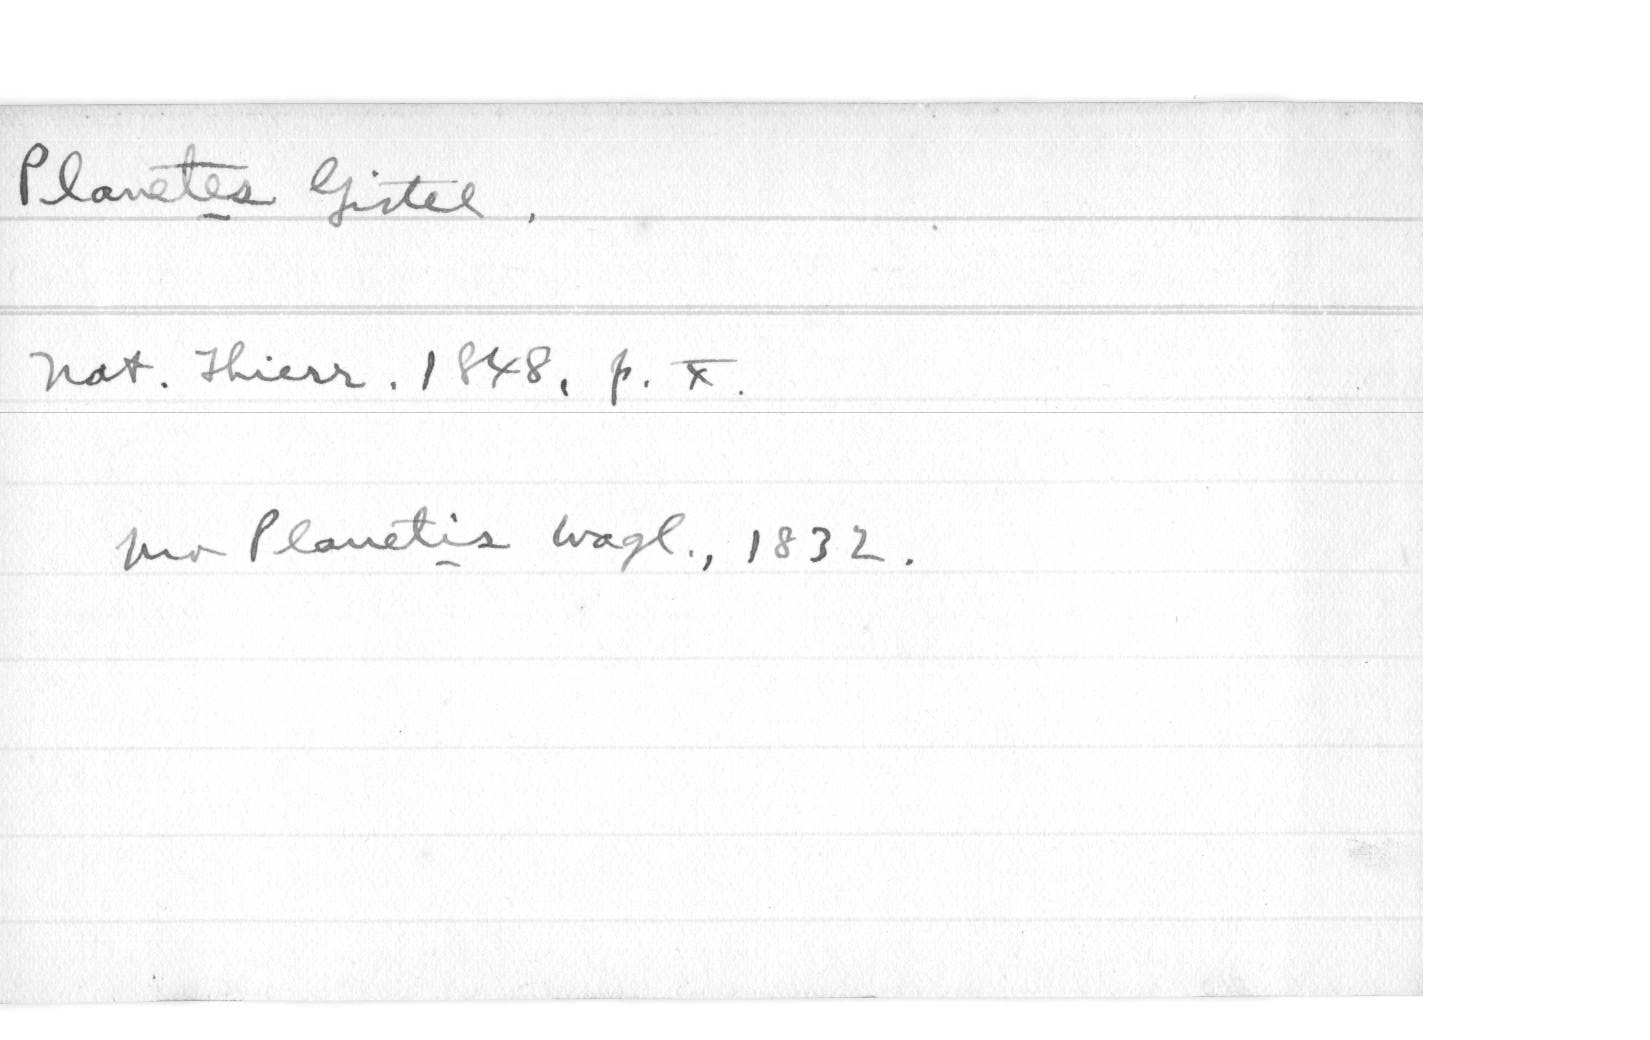 Planetes Gistel,
Nat. Thierr. 1848, p. X.
pro Planetis Wagl., 1832.